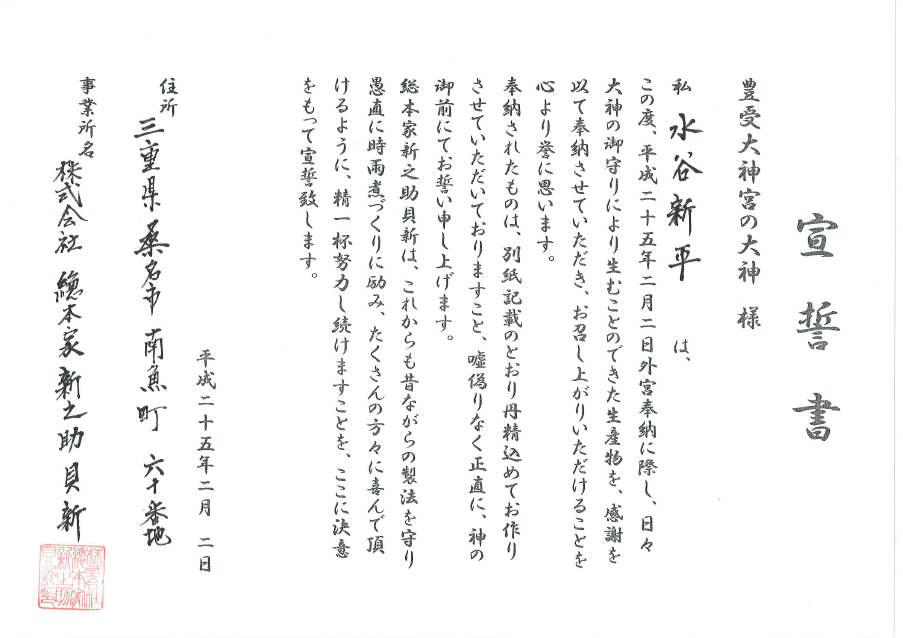 宣誓書
豊受大神宮の大神 様
私 水谷新平 は、
この度、平成二十五年二月二日外宮奉納に際し、日々
大神の御守りにより生むことのできた生産物を、感謝を
以て奉納させていただき、お召し上がりいただけることを
心より誉に思います。
奉納されたものは、別紙記載のとおり丹精込めてお作り
させていただいておりますこと、嘘偽りなく正直に、神の
御前にてお誓い申し上げます。
総本家新之助貝新は、これからも昔ながらの製法を守り
愚直に時雨煮づくりに励み、たくさんの方々に喜んで頂
けるように、精一杯努力し続けますことを、ここに決意
をもって宣誓致します。
平成二十五年二月 二日
住所 三重県桑名市南魚町 六十番地
事業所名 株式会社 總本家新之助貝新